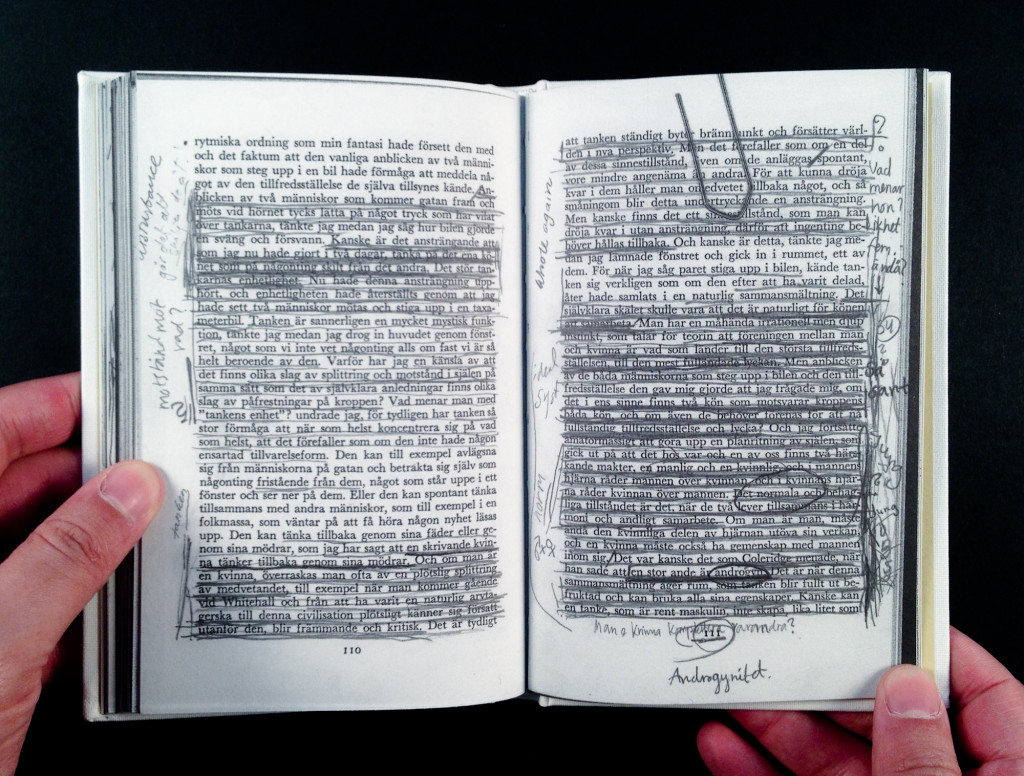 rytmiska ordning som min fantasi hade försett den med
och det faktum att den vanliga anblicken av två männi-
skor som steg upp i en bil hade förmåga att meddela nå-
got av den tillfredsställelse de själva tillsynes kände. An-
blicken av två människor som kommer gatan fram och
möts vid hörnet tycks lätta på något tryck som har vilat
över tankarna, tänkte jag medan jag såg hur bilen gjorde
en sväng och försvann. Kanske är det ansträngande att
som jag nu hade gjort i två dagar, tänka på det ena kö-
net som på någonting skilt från det andra. Det stör tan-
karnas enhetlighet. Nu hade denna ansträngning upp-
hört, och enhetligheten hade återställts genom att jag
hade sett två människor mötas och stiga upp i en taxa-
meterbil. Tanken är sannerligen en mycket mystisk funk-
tion, tänkte jag medan jag drog in huvudet genom fönst-
ret, något som vi inte vet någonting alls om fast vi är så
helt beroende av den. Varför har jag en känsla av att
det finns olika slag av splittring och motstånd i själen på
samma sätt som det av självklara anledningar finns olika
slag av påfrestningar på kroppen? Vad menar man med
"tankens enhet"? undrade jag, för tydligen har tanken så
stor förmåga att när som helst koncentrera sig på vad
som helst, att det förefaller som om den inte hade någon
ensartad tillvarelseform. Den kan till exempel avlägsna
sig från människorna på gatan och betrakta sig själv som
någonting fristående från dem, något som står uppe i ett
fönster och ser ner på dem. Eller den kan spontant tänka
tillsammans med andra människor, som till exempel i en
folkmassa, som väntar på att få höra någon nyhet läsas
upp. Den kan tänka tillbaka genom sina fäder eller ge-
nom sina mödrar, som jag har sagt att en skrivande kvin-
na tänker tillbaka genom sina mödrar. Och om man är
en kvinna, överraskas man ofta av en plötslig splittring
av medvetandet, till exempel när man kommer gående
vid Whitehall och från att ha varit en naturlig arvta-
gerska till denna civilisation plötsligt känner sig försatt
utanför den, blir främmande och kritisk. Det är tydligt
110
motstånd mot
vad?
tanken
att tanken ständigt byter brännpunkt och försätter värl-
den i nya perspektiv. Men det förefaller som om en del
av dessa sinnestillstånd, även om de anläggas spontant,
vore mindre angenäma än andra. För att kunna dröja
kvar i dem håller man omedvetet tillbaka något, och så
småningom blir detta undertryckande en ansträngning.
Men kanske finns det ett sinnestillstånd, som man kan
dröja kvar i utan ansträngning, därför att ingenting be-
höver hållas tillbaka. Och kanske är detta, tänkte jag me-
dan jag lämnade fönstret och gick in i rummet, ett av
dem. För när jag såg paret stiga upp i bilen, kände tan-
ken sig verkligen som om den efter att ha varit delad,
åter hade samlats i en naturlig sammansmältning. Det
självklara skälet skulle vara att det är naturligt för könen
att samarbeta. Man har en måhända irrationell men djup
instinkt, som talar för teorin att föreningen mellan man
och kvinna är vad som länder till den största tillfreds-
ställelsen, till den mest fulländade lyckan. Men anblicken
av de båda människorna som steg upp i bilen och den till-
fredsställelse den gav mig gjorde att jag frågade mig, om
det i ens sinne finns två kön som motsvarar kroppens
båda kön, och om även de behöver förenas för att nå
fullständig tillfredsställelse och lycka? Och jag fortsatte
amatörmässigt att göra upp en planritning av själen, som
gick ut på att det hos var och en av oss finns två härs-
kande makter, en manlig och en kvinnlig, och i mannens
hjärna råder mannen över kvinnan och i kvinnans hjär-
na råder kvinnan över mannen. Det normala och behag-
liga tillståndet är det, när de två lever tillsammans i har-
moni och andligt samarbete. Om man är man, måste
ändå den kvinnliga delen av hjärnan utöva sin verkan
och en kvinna måste också ha gemenskap med mannen
inom sig. Det var kanske det som Coleridge menade, när
han sade att en stor ande är androgyn. Det är när denna
sammansmältning äger rum, som tanken blir fullt ut be-
fruktad och kan bruka alla sina egenskaper. Kanske kan
en tanke, som är rent maskulin, inte skapa, lika litet som
111
?
Vad
menar
hon?
Androgynitet.